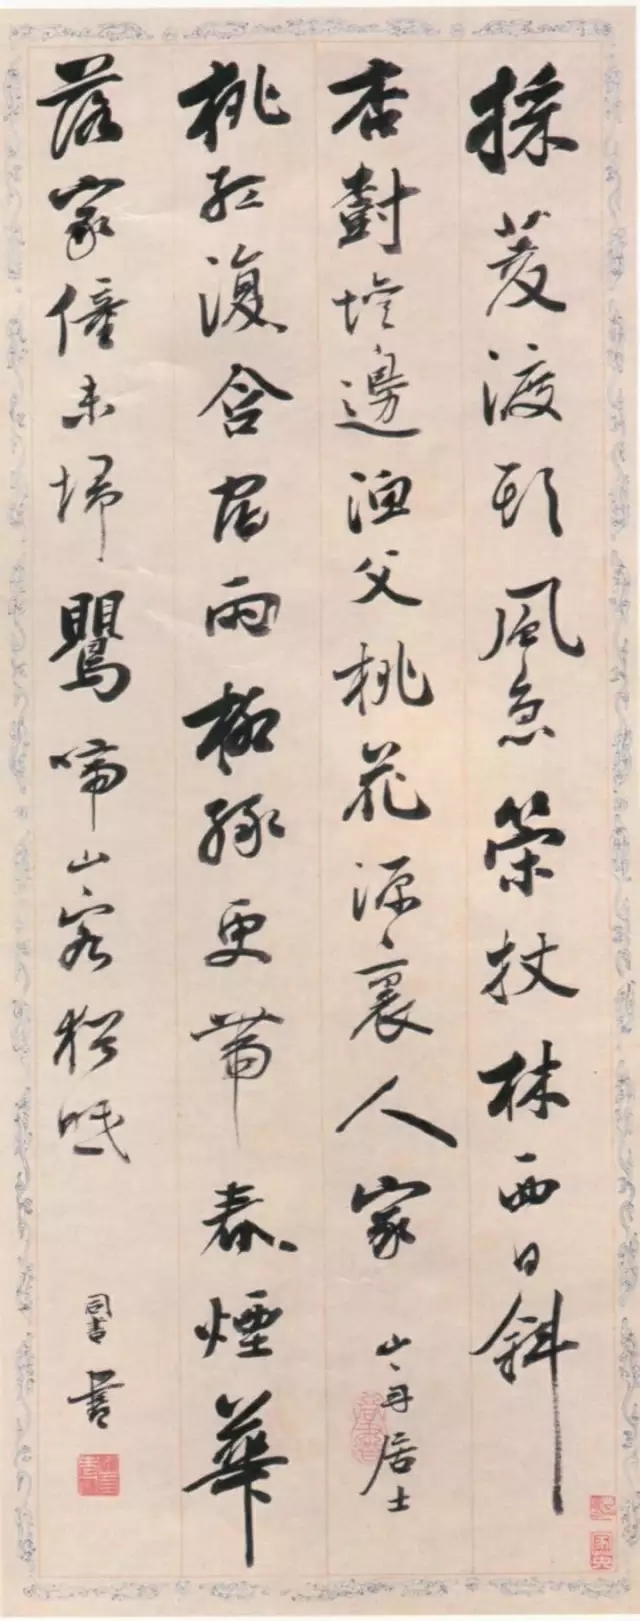 採菱渡頭風急策杖林西日斜
杏對壇邊漁父桃花源裏人家 山舟居士
桃紅復含宿雨柳綠更帶春煙華
落家僮未埽鸎啼山客猶眠 同書書